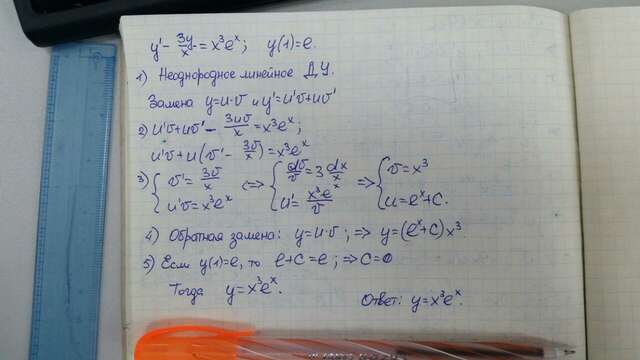 y' - 3y/x = x³eˣ; y(1)=e.
1) Неоднородное линейное Д.У.
Замена y=u·v и y'=u'v+uv'
2) u'v+uv' - 3uv/x = x³eˣ;
u'v+u(v' - 3v/x)=x³eˣ
3) { v' = 3v/x <=> { dv/v = 3 dx/x => { v=x³
u'v=x³eˣ u' = x³eˣ/v u=eˣ+C.
4) Обратная замена: y=u·v; => y=(eˣ+C)x³
5) Если y(1)=e, то e+C=e; => C=0
Тогда y=x³eˣ. Ответ: y=x³eˣ.